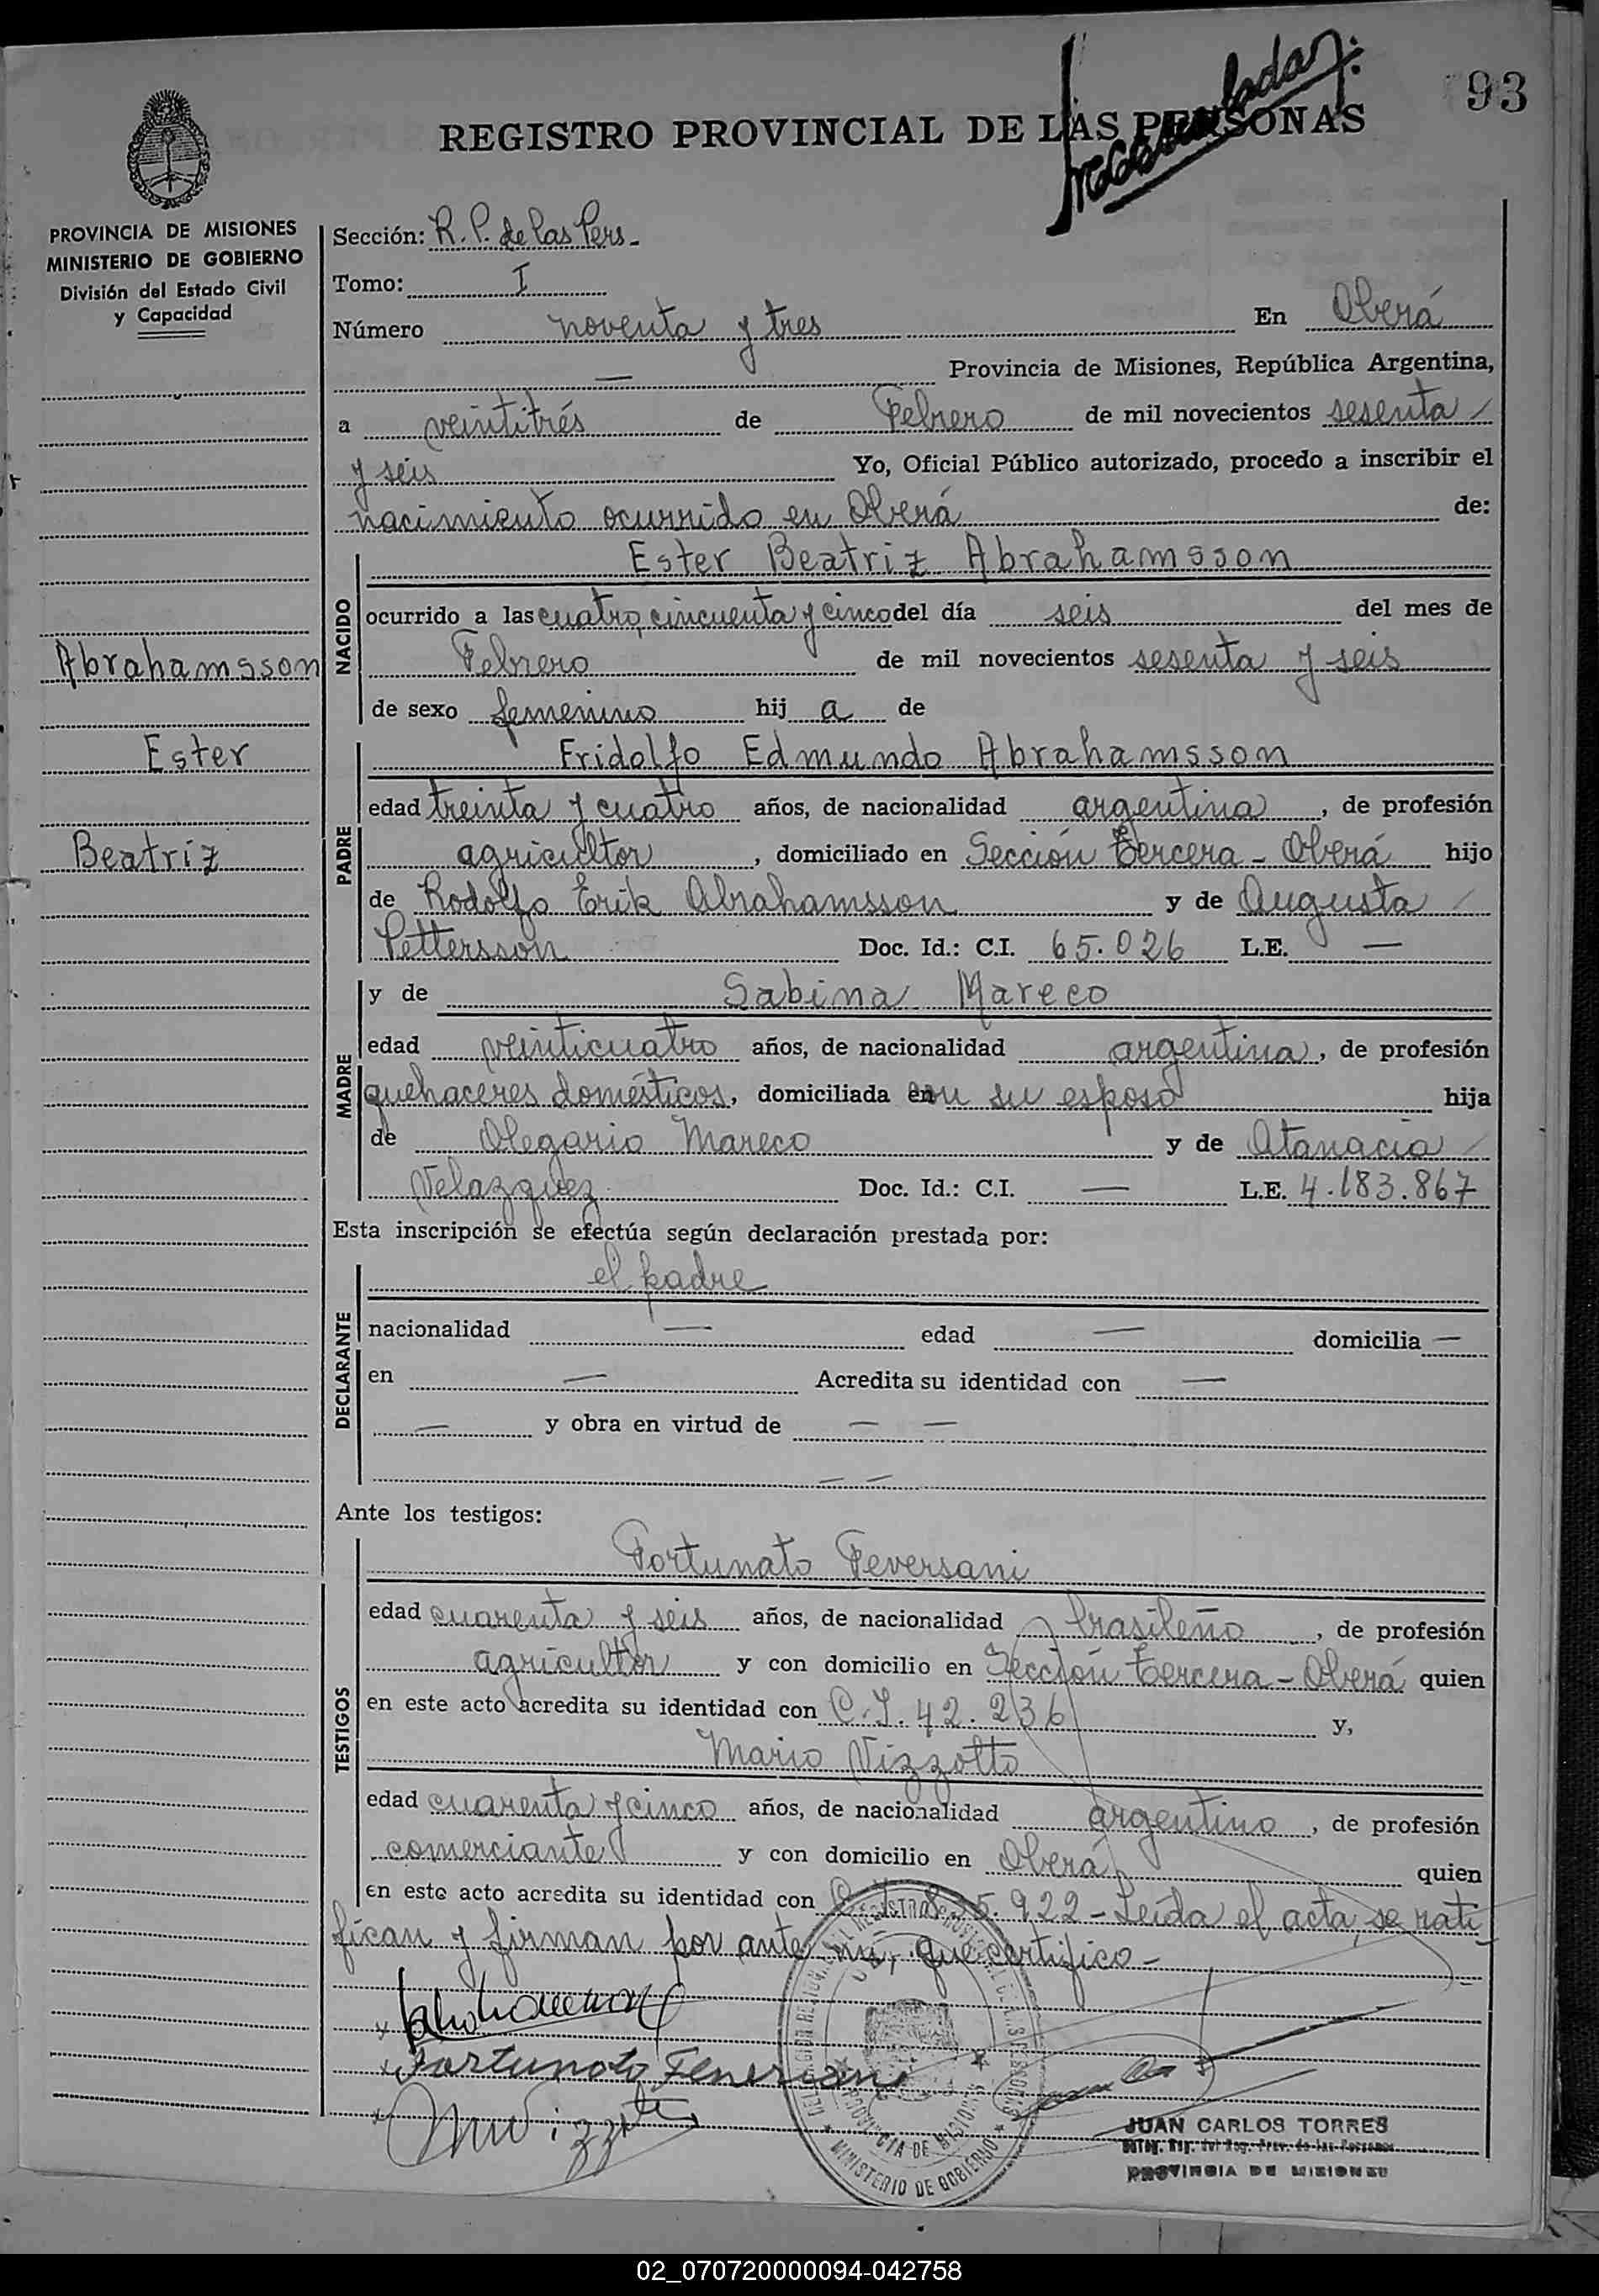 93
REGISTRO PROVINCIAL DE LAS PERSONAS
PROVINCIA DE MISIONES
MINISTERIO DE GOBIERNO
División del Estado Civil
y Capacidad
Abrahamsson
Ester
Beatríz
Sección: R. P. de las Pers.-
Tomo: I
Número noventa y tres En Oberá
— Provincia de Misiones, República Argentina,
a veintitrés de Febrero de mil novecientos sesenta /
y seis Yo, Oficial Público autorizado, procedo a inscribir el
nacimiento ocurrido en Oberá de:
NACIDO
Ester Beatriz Abrahamsson
ocurrido a las cuatro, cincuenta y cinco del día seis del mes de
Febrero de mil novecientos sesenta y seis
de sexo femenino hij a de
PADRE
Fridolfo Edmundo Abrahamsson
edad treinta y cuatro años, de nacionalidad argentina, de profesión
agricultor, domiciliado en Sección Tercera - Oberá hijo
de Rodolfo Erik Abrahamsson y de Augusta /
Pettersson Doc. Id.: C.I. 65.026 L.E. —
MADRE
y de Sabina Mareco
edad veinticuatro años, de nacionalidad argentina, de profesión
quehaceres domésticos, domiciliada con su esposo hija
de Olegario Mareco y de Atanacia /
Velazquez Doc. Id.: C.I. — L.E. 4.183.867
Esta inscripción se efectúa según declaración prestada por:
DECLARANTE
el padre
nacionalidad — edad — domicilia —
en — Acredita su identidad con —
— y obra en virtud de — —
— —
Ante los testigos:
TESTIGOS
Fortunato Feversani
edad cuarenta y seis años, de nacionalidad brasileño, de profesión
agricultor y con domicilio en Sección Tercera - Oberá quien
en este acto acredita su identidad con C.I. 42.236 y,
Mario Vizzotto
edad cuarenta y cinco años, de nacionalidad argentino, de profesión
comerciante y con domicilio en Oberá quien
en este acto acredita su identidad con 5.922 - Leída el acta, se rati-
fican y firman por ante mí, que certifico -
Fortunato
PROVINCIA DE MISIONES
MINISTERIO DE GOBIERNO
JUAN CARLOS TORRES
PROVINCIA DE MISIONES
02_070720000094-042758